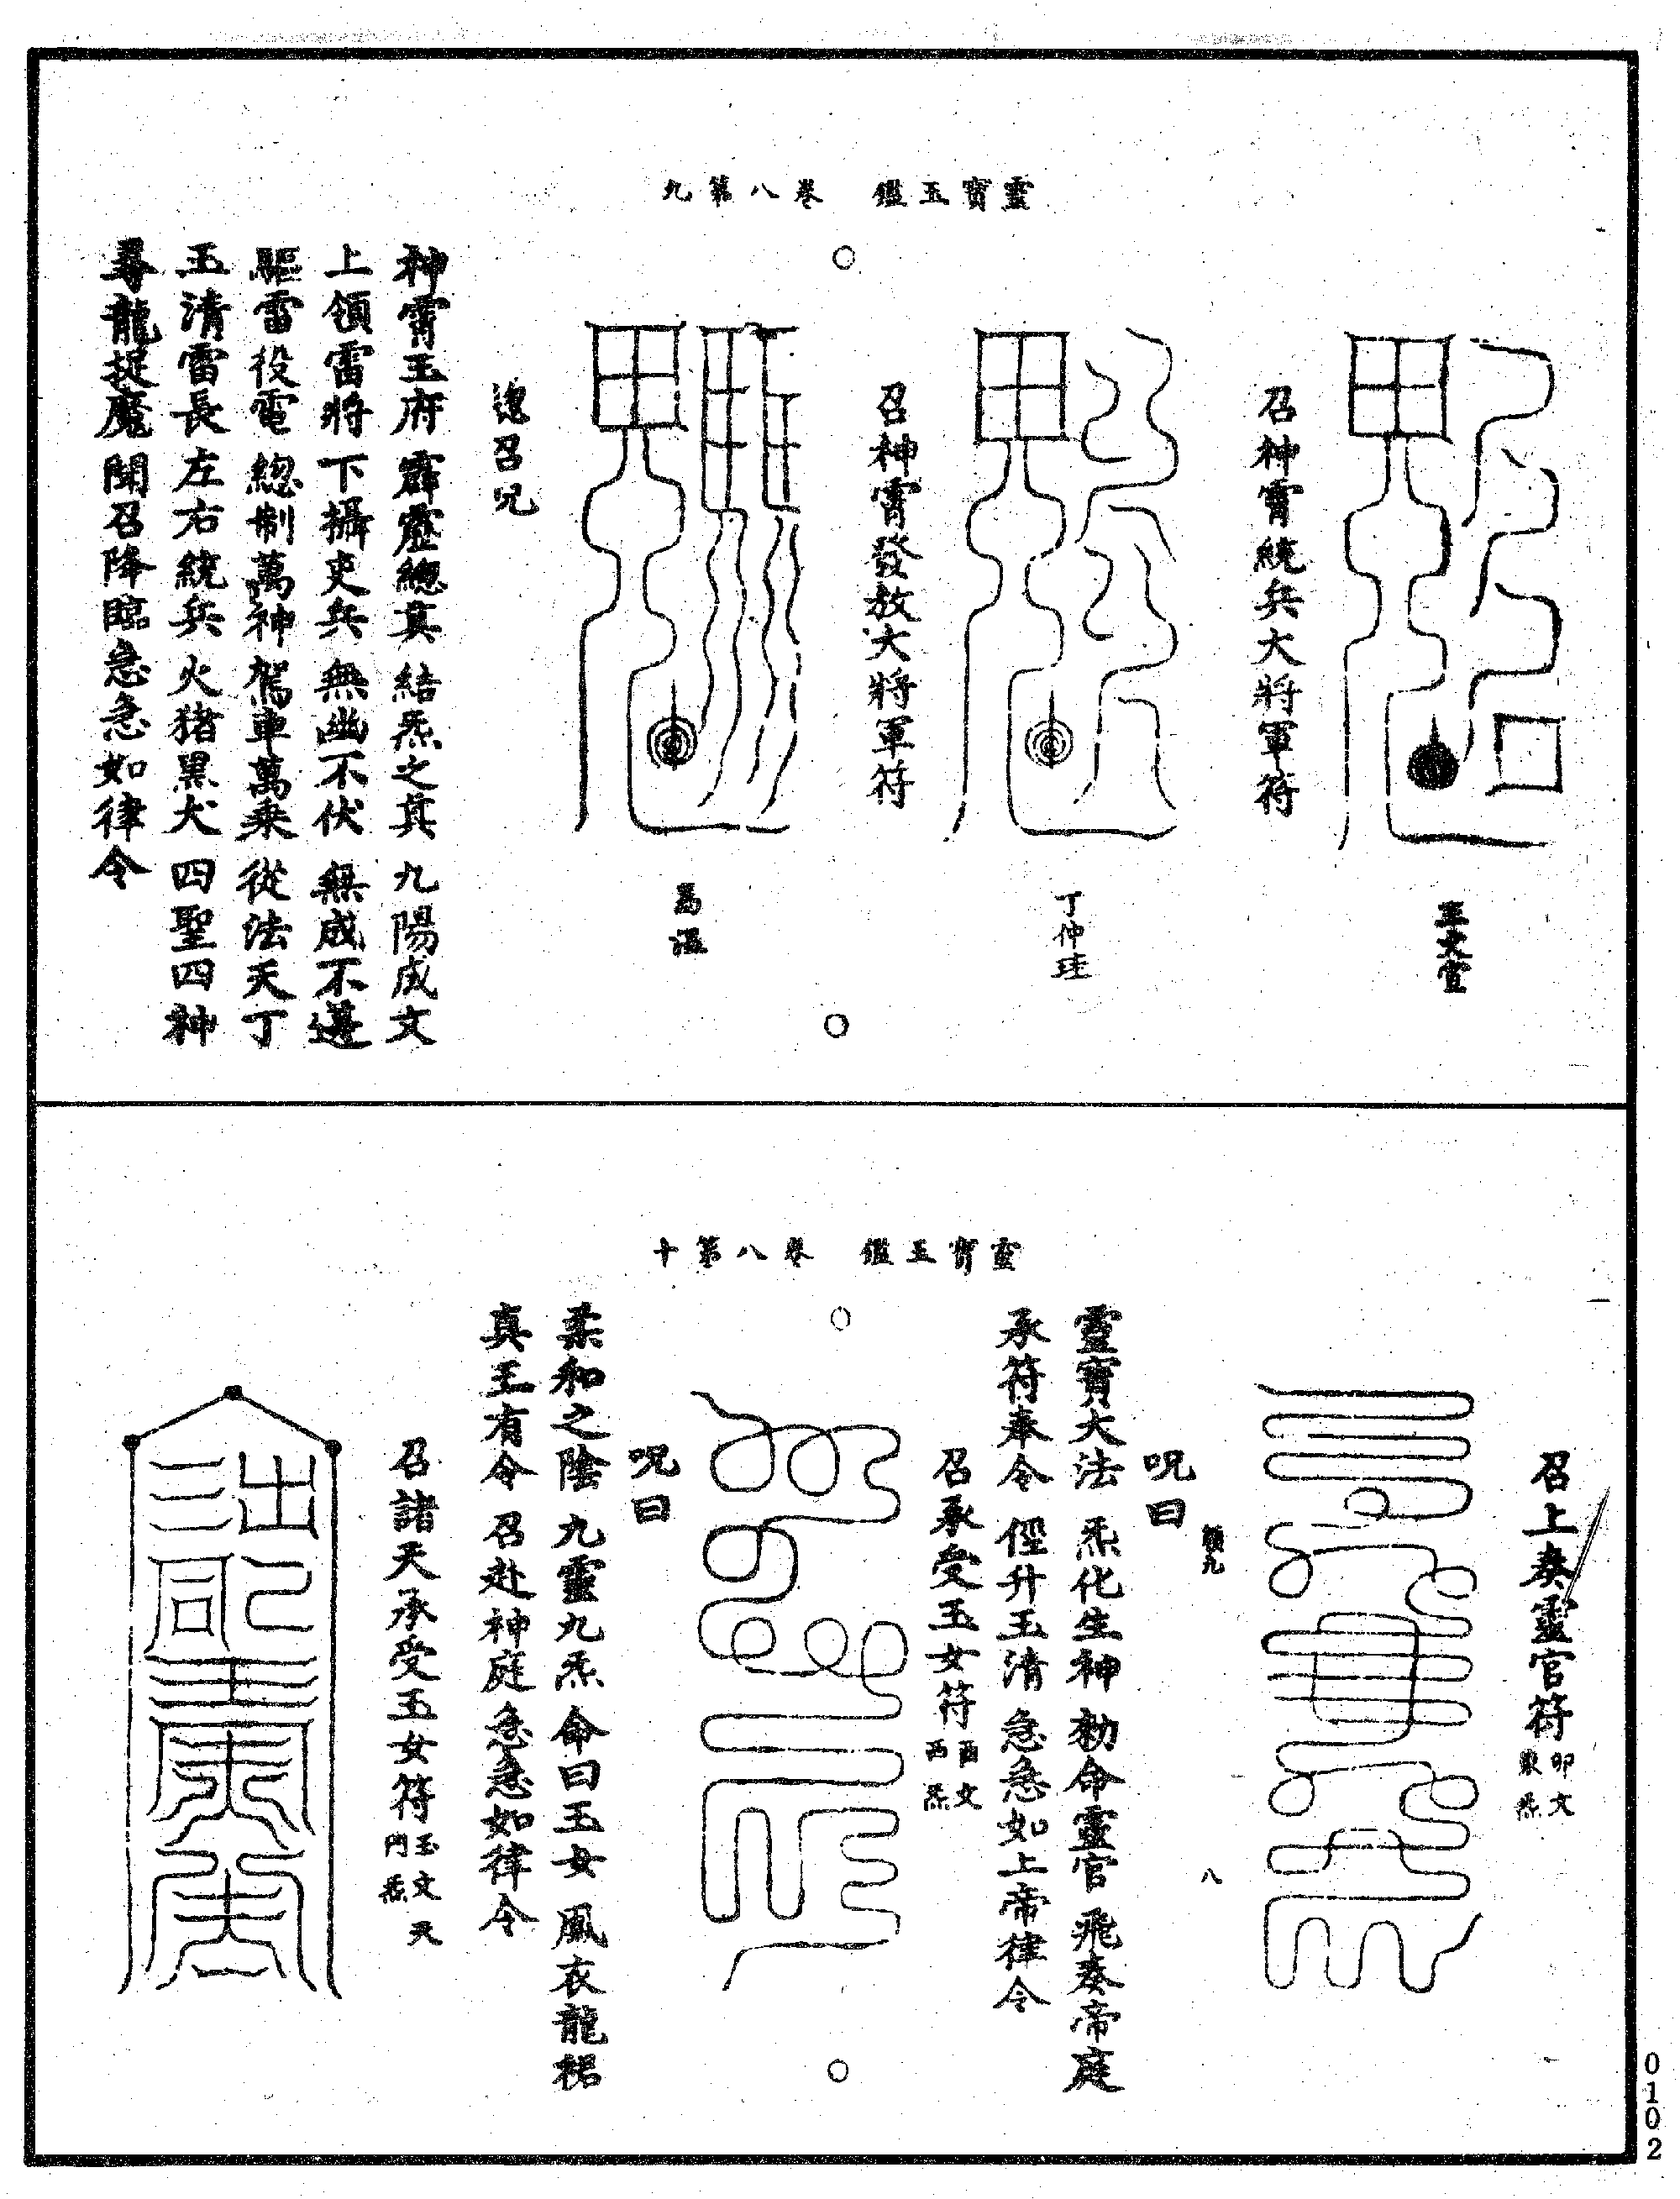 靈寶玉鑑　卷八第九
王文卿
召神霄統兵大將軍符
丁仲珪
召神霄發放大將軍符
萬溫
總召咒
神霄玉府　霹靂總真　結炁之真　九陽成文
上領雷將　下攝吏兵　無幽不伏　無成不遵
驅雷役電　總制萬神　駕車萬乘　從法天丁
玉清雷長　左右統兵　火猪黑犬　四聖四神
尋龍捉魔　聞召降臨　急急如律令
靈寶玉鑑　卷八第十
召上奏靈官符　卯文東炁
類九　八
咒曰
靈寶大法　炁化生神　勑命靈官　飛奏帝庭
承符奉令　徑升玉清　急急如上帝律令
召承受玉女符　酉文西炁
咒曰
柔和之陰　九靈九炁　命曰玉女　鳳衣龍裙
真王有令　召赴神庭　急急如律令
召諸天承受玉女符　玉文天門炁
0102